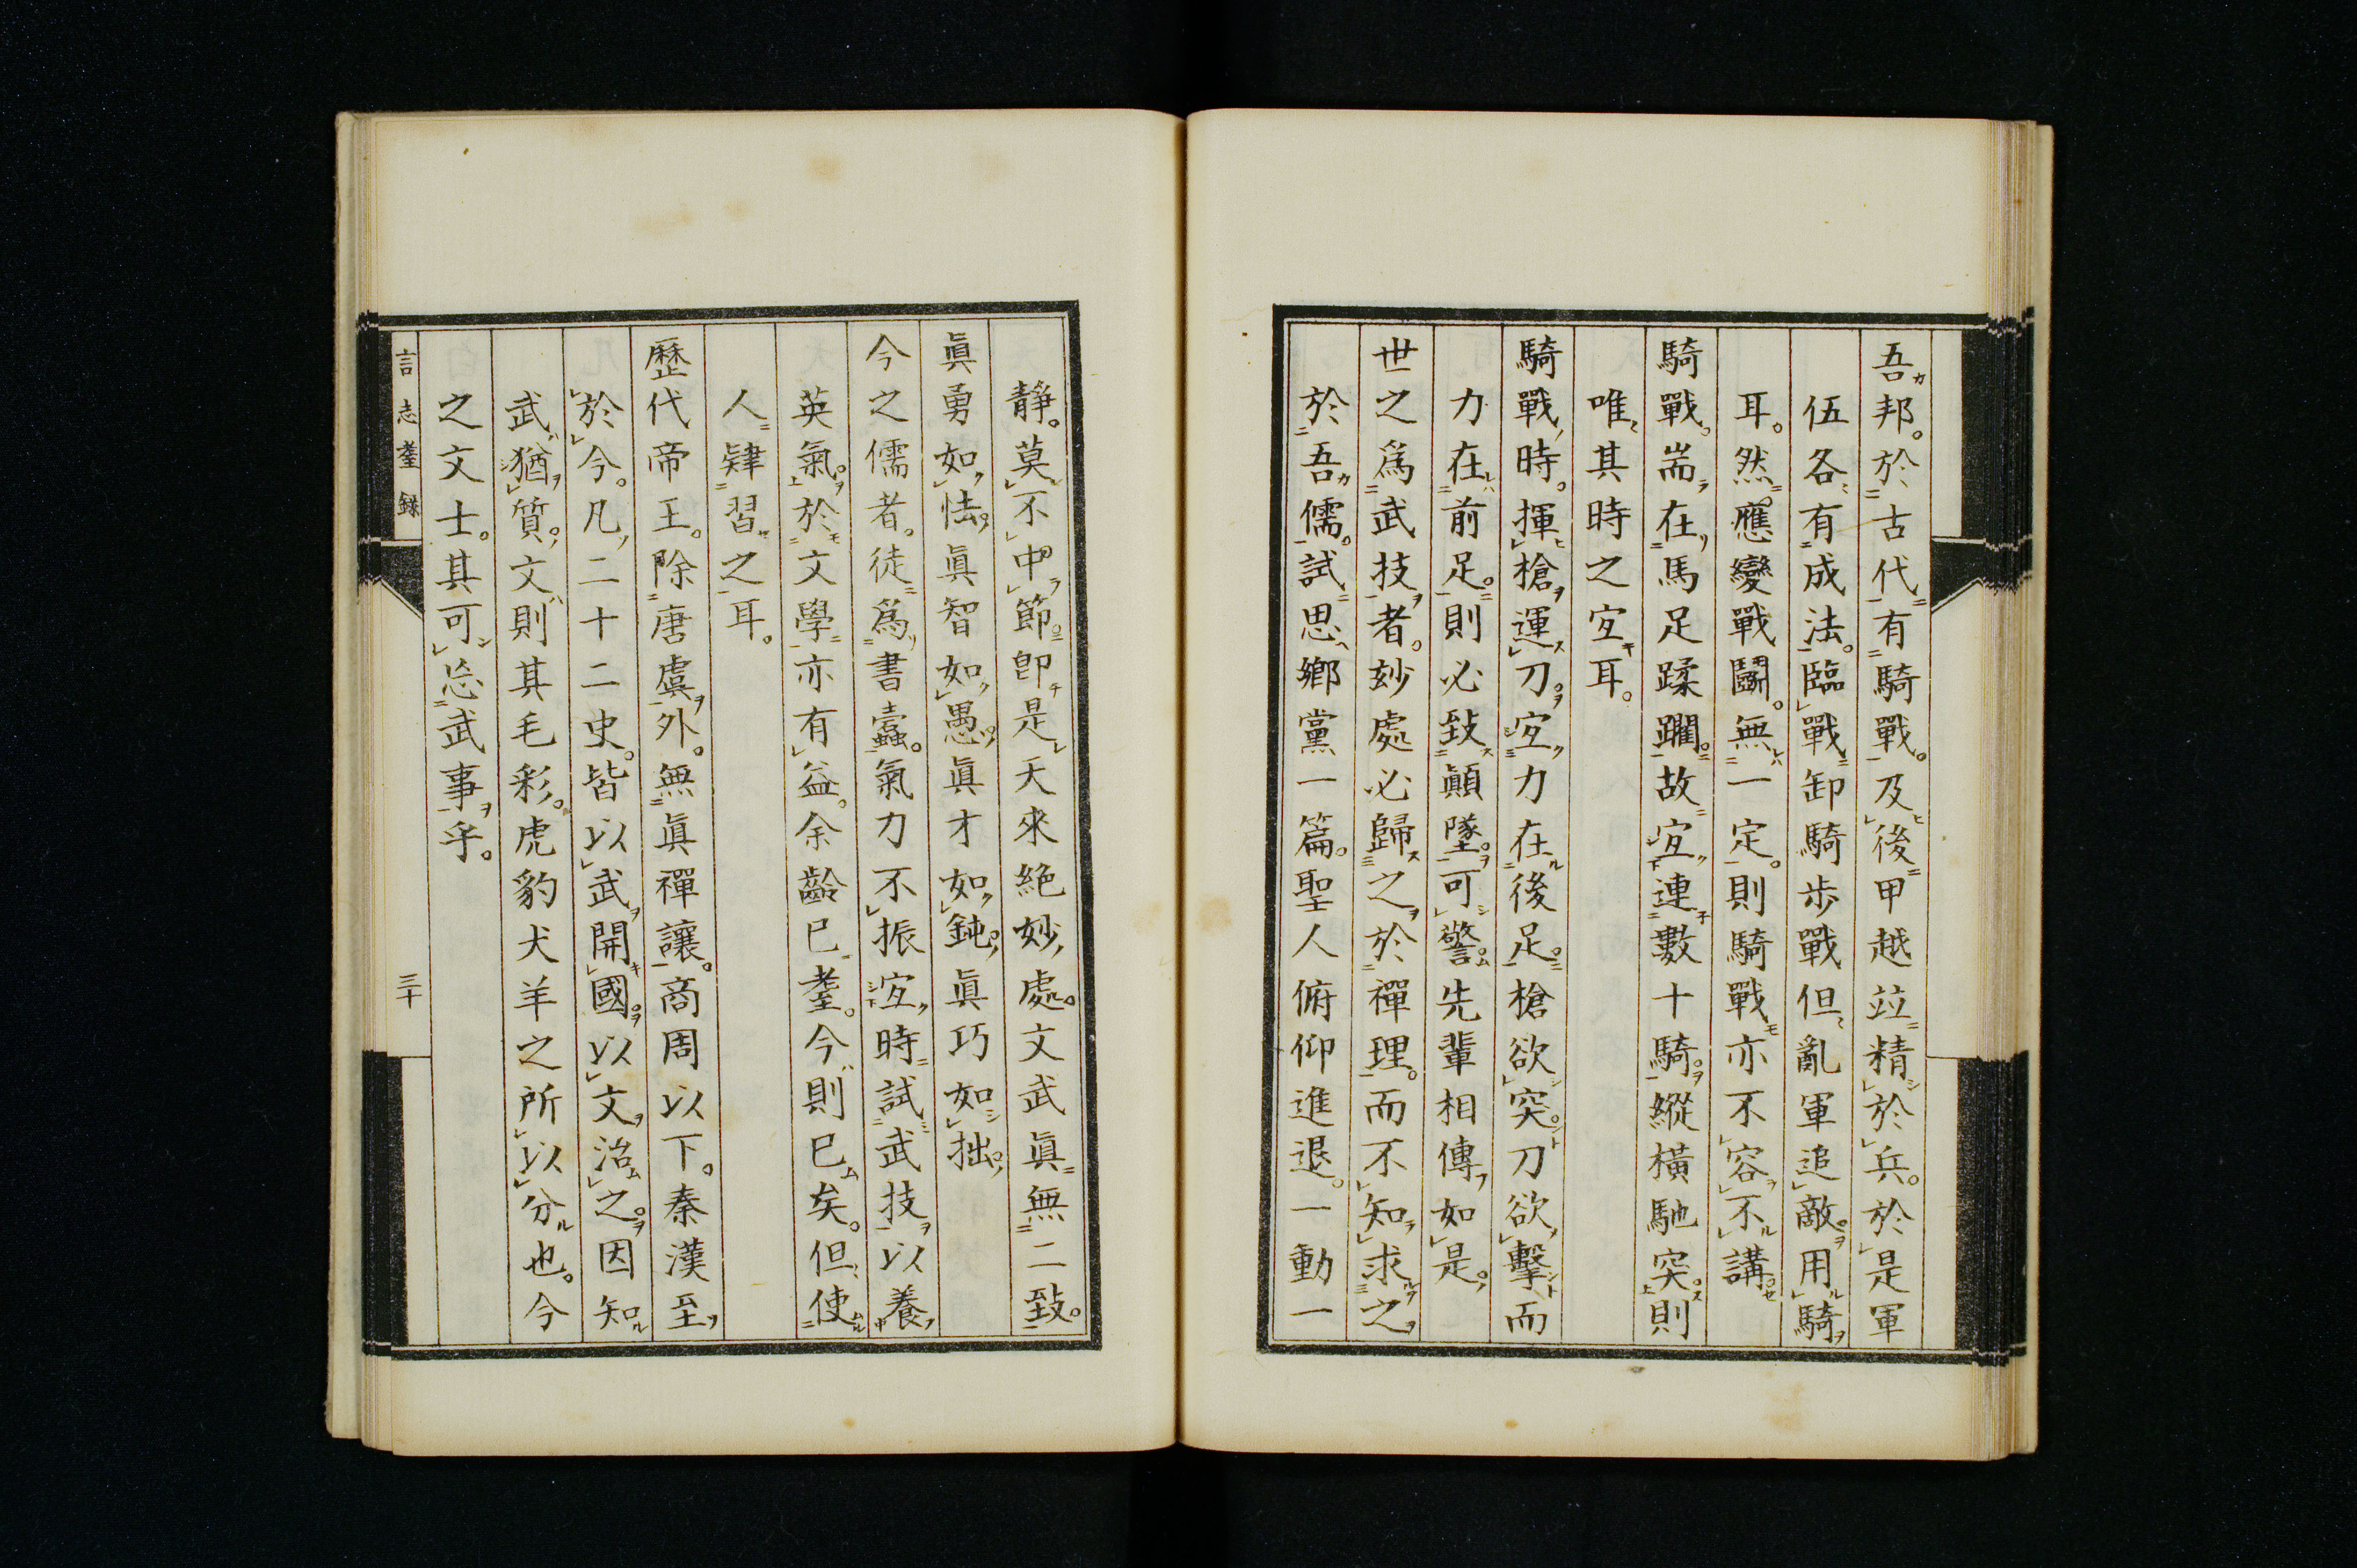 吾邦。於古代有騎戰。及後甲越竝精於兵。於是軍
伍各有成法。臨戰卸騎步戰但亂軍追敵。用騎
耳。然應變戰鬭。無一定。則騎戰亦不容不講
騎戰。耑在馬足蹂躙。故宐連數十騎。縱橫馳突。則
唯其時之宐耳。
騎戰時。揮槍運刀。宐力在後足。槍欲突。刀欲擊而
力在前足。則必致顛墜。可警。先輩相傳如是。
世之爲武技者。玅處必歸之於禪理。而不知求之
於吾儒。試思鄉黨一篇。聖人俯仰進退。一動一
靜。莫不中節。卽是天來絶妙處。文武眞無二致。
眞勇如怯。眞智如愚。眞才如鈍。眞巧如拙。
今之儒者。徒爲書蠹。氣力不振宐時試武技以養
英氣。於文學亦有益。余齡已耋。今則已矣。但使
人肄習之耳。
歷代帝王。除唐虞外。無眞禪讓。商周以下。秦漢至
於今。凡二十二史。皆以武開國。以文治之。因知
武猶質。文則其毛彩。虎豹犬羊之所以分也。今
之文士。其可忘武事乎。
言志耋錄
三十